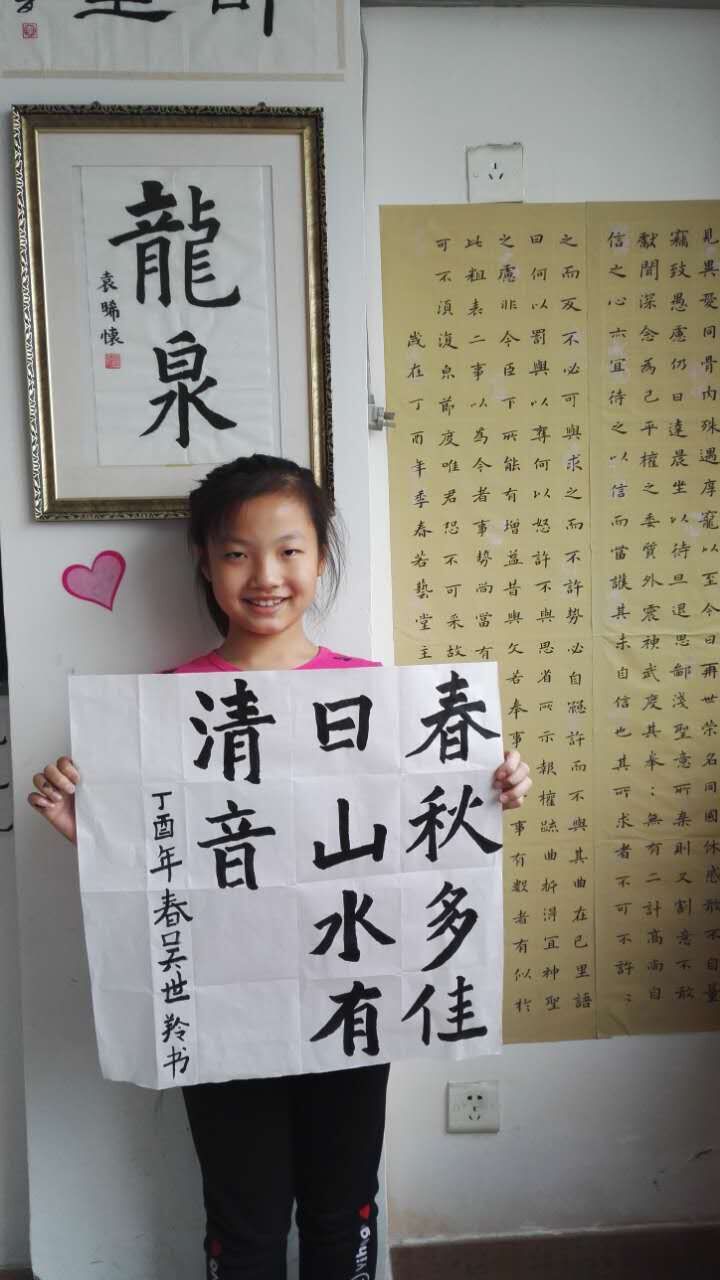 龍泉
袁晞懷
春秋多佳
日山水有
清音
丁酉年春吴世羚书
見異憂同骨内殊遇厚寵以至今日再世榮名同國休感敢不自量
竊致愚慮仍日達晨坐以待旦退思鄙淺聖意所棄則又割意不敢
獻聞深念為己平權之委質外震神武度其拳：無有二計高尚自
信之心亦宜待之以信而當護其未自信也其所求者不可不許：
之而反不必可與求之而不許勢必自絕許而不與其曲在己里語
曰何以罰與以奪何以怒許不與思省所示報權疏曲折得宜神聖
之慮非今臣下所能有增益昔與文若奉事事有數者有似於
此粗表二事以為今者事勢尚當有
可不須復節度唯君恐不可采故
歲在丁酉年季春若藝堂主